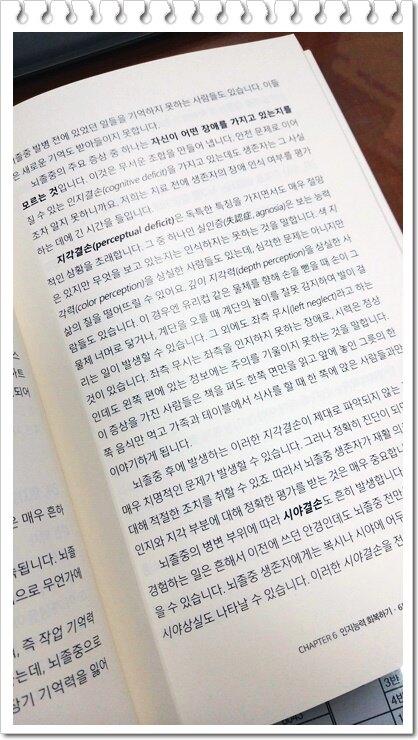 스
카트
되어
은 매우 흔하
속됩니다. 뇌졸
으로 무언가에
, 즉 작업 기억력
는데, 뇌졸중으로
장기 기억력을 잃어
뇌졸중 발병 전에 있었던 일들을 기억하지 못하는 사람들도 있습니다. 이들
은 새로운 기억도 받아들이지 못합니다.
뇌졸중의 주요 증상 중 하나는 자신이 어떤 장애를 가지고 있는지를
모르는 것입니다. 이것은 무서운 조합을 만들어 냅니다. 안전 문제로 이어
질 수 있는 인지결손(cognitive deficit)을 가지고 있는데도 생존자는 그 사실
조차 알지 못하니까요. 저희는 치료 전에 생존자의 장애 인식 여부를 평가
하는 데에 긴 시간을 들입니다.
지각결손(perceptual deficit)은 독특한 특징을 가지면서도 매우 절망
적인 상황을 초래합니다. 그 중 하나인 실인증(失認症, agnosia)은 보는 능력
은 있지만 무엇을 보고 있는지는 인식하지는 못하는 것을 말합니다. 색 지
각력(color perception)을 상실한 사람들도 있는데, 심각한 문제는 아니지만
삶의 질을 떨어뜨릴 수 있어요. 깊이 지각력(depth perception)을 상실한 사
람들도 있습니다. 이 경우엔 유리컵 같은 물체를 향해 손을 뻗을 때 손이 그
물체 너머로 닿거나, 계단을 오를 때 계단의 높이를 잘못 감지하여 발이 걸
리는 일이 발생할 수 있습니다. 그 외에도 좌측 무시(left neglect)라고 하는
것이 있습니다. 좌측 무시는 좌측을 인지하지 못하는 장애로, 시력은 정상
인데도 왼쪽 편에 있는 정보에는 주의를 기울이지 못하는 것을 말합니다.
이 증상을 가진 사람들은 책을 펴도 한쪽 면만을 읽고 앞에 놓인 그릇의 한
쪽 음식만 먹고 가족과 테이블에서 식사를 할 때 한 쪽에 앉은 사람들과만
이야기하게 됩니다.
뇌졸중 후에 발생하는 이러한 지각결손이 제대로 파악되지 않는
매우 치명적인 문제가 발생할 수 있습니다. 그러나 정확히 진단이 되
대해 적절한 조치를 취할 수 있죠. 따라서 뇌졸중 생존자가 재활
인지와 지각 부분에 대해 정확한 평가를 받는 것은 매우 중요합
뇌졸중의 병변 부위에 따라 시야결손도 흔히 발생합니다.
경험하는 일은 흔해서 이전에 쓰던 안경인데도 뇌졸중 전만
을 수 있습니다. 뇌졸중 생존자에게는 복시나 시야에 어두
시야상실도 나타날 수 있습니다. 이러한 시야결손을 전
CHAPTER 6 인지능력 회복하기
3반
4반